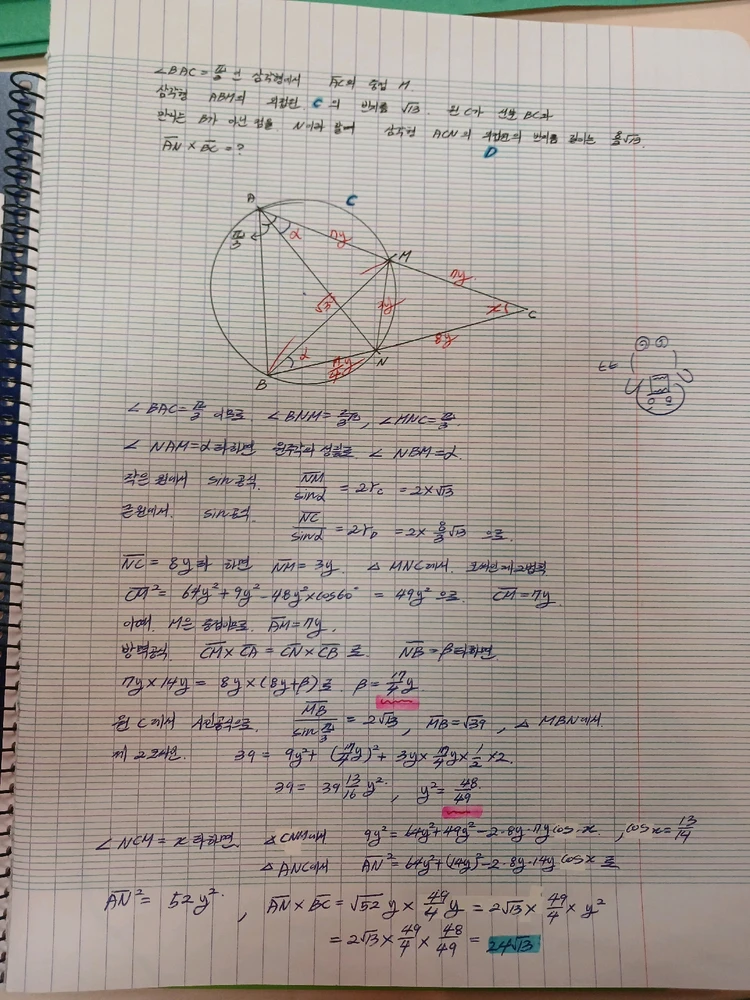 ∠BAC = π/3 인 삼각형에서 A̅C̅의 중점 M
삼각형 ABM의 외접원 C의 반지름 √13. 원 C가 선분 BC와
만나는 B가 아닌 점을 N이라 할때 삼각형 ACN의 외접원의 반지름 길이는 8/3√13.
D
A̅N̅ × B̅C̅ = ?
A C
π/3 α 7y M
7y
√13 3y x C
α 8y
17/4y N
B
∠BAC = π/3 이므로. ∠BNM = 2/3π, ∠MNC = π/3.
∠NAM = α라하면 원주각의 성질로 ∠NBM = α.
작은 원에서 sin공식. N̅M̅/sinα = 2r_C = 2×√13
큰원에서. sin공식. N̅C̅/sinα = 2r_D = 2× 8/3√13 으로.
N̅C̅ = 8y라 하면 N̅M̅ = 3y. △MNC에서. 코사인제2법칙
C̅M̅² = 64y² + 9y² - 48y² × cos60° = 49y² 으로. C̅M̅ = 7y
이때. M은 중점이므로. A̅M̅ = 7y.
방멱공식 C̅M̅ × C̅A̅ = C̅N̅ × C̅B̅ 로. N̅B̅ = β라하면.
7y × 14y = 8y × (8y+β)로. β = 17/4y.
원 C에서 사인공식으로. M̅B̅/sinπ/3 = 2√13, M̅B̅ = √39, △MBN에서.
제2코사인. 39 = 9y² + (17/4y)² + 3y × 17/4y × 1/2 × 2.
39 = 39 13/16 y², y² = 48/49
∠NCM = x라하면 △CNM에서 9y² = 64y² + 49y² - 2·8y·7y cos x. , cosx = 13/14
△ANC에서 A̅N̅² = 64y² + (14y)² - 2·8y·14y cosx 로
A̅N̅² = 52y². , A̅N̅ × B̅C̅ = √52 y × 49/4 y = 2√13 × 49/4 × y²
= 2√13 × 49/4 × 48/49 = 24√13